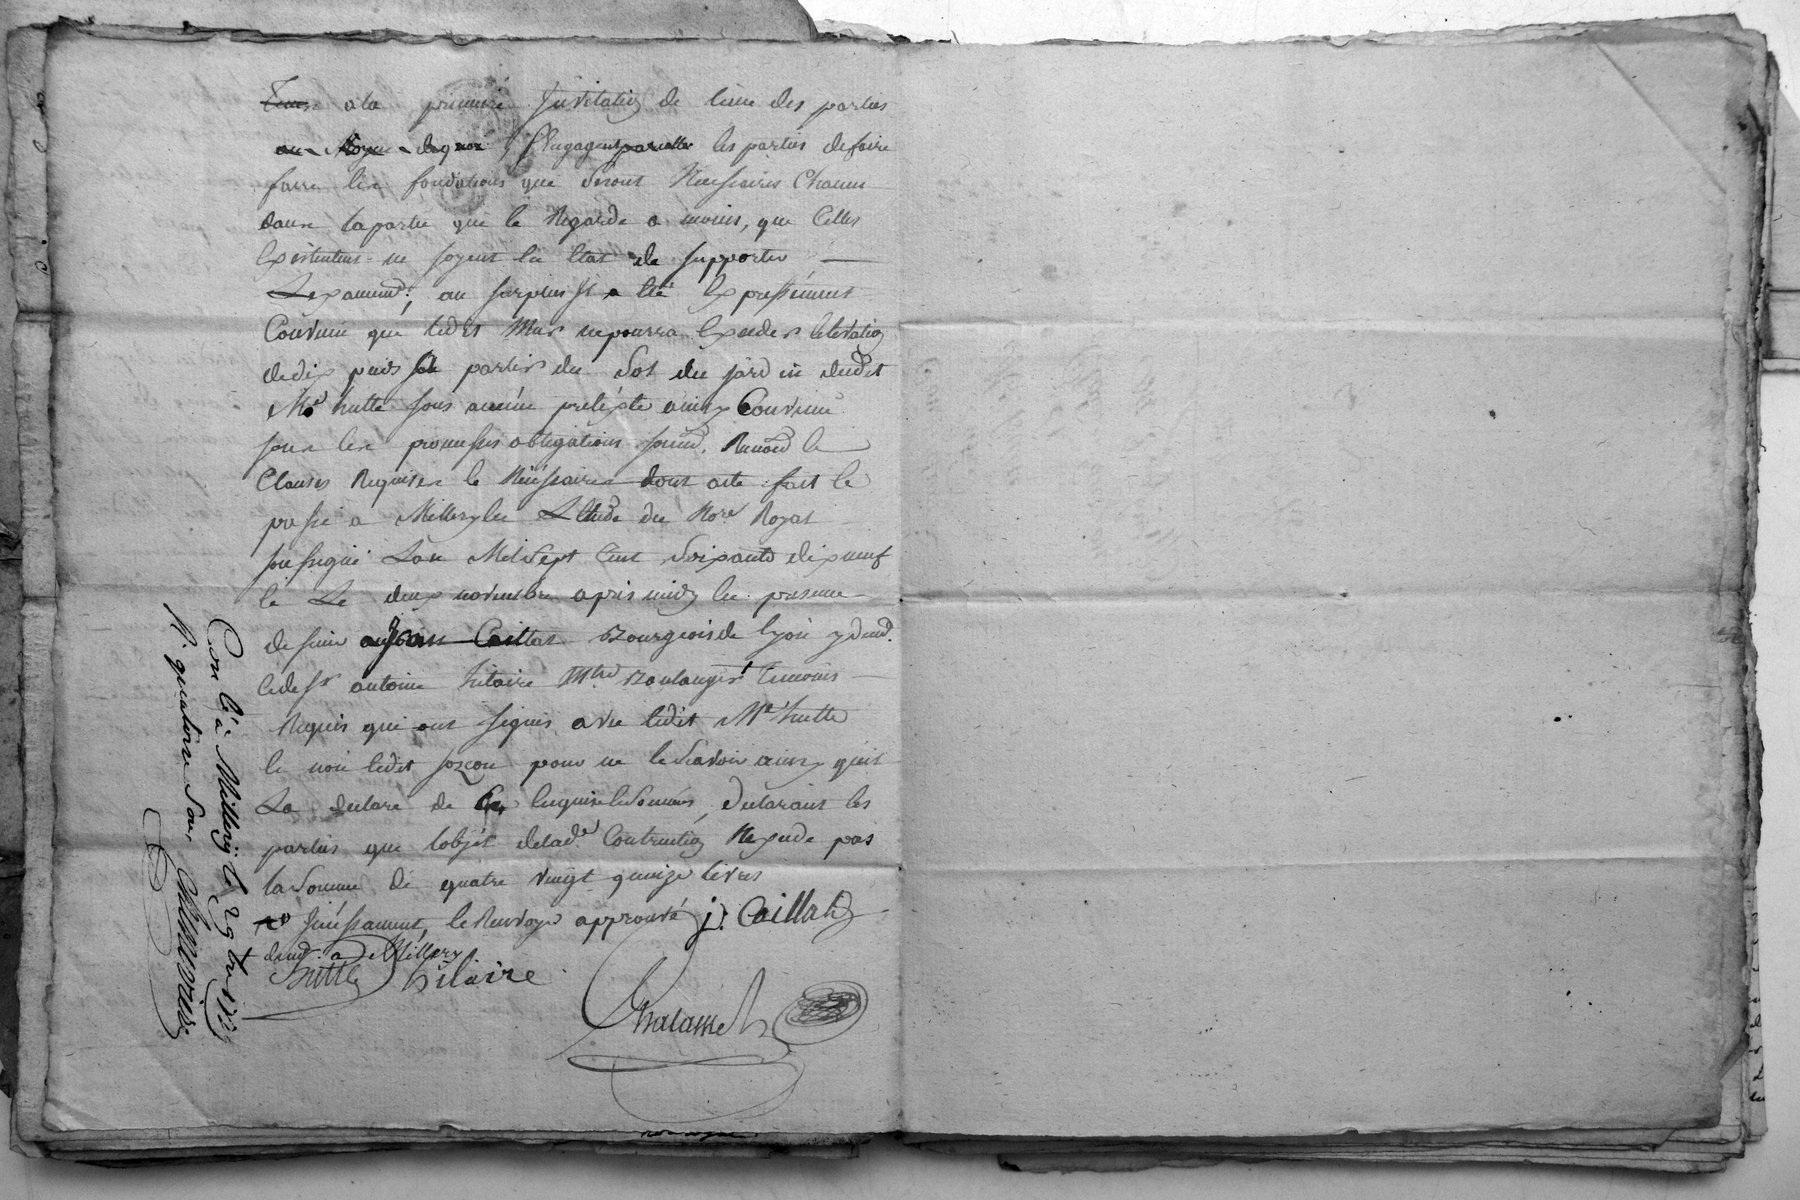 a la première Invitation de lune des parties
Sengagent les parties de faire
faire les fondations qui seront Necessaires Chacun
dans la partie qui le Regarde a moins, que Celles
Existentes ne soyent En Etat de supporter
au surplus Il a Eté Expressément
Convenu que ledit Mur ne pourra Exceder leslevation
de dix pieds a partir du Sol du jardin dudit
Me hutte sous aucune prétexte ainsy Convenu
sous les promesses obligations soumd. Renond Et
Clauses Requises Et Nécéssaires dont acte fait Et
passé a Millery En L'Etude du Nore Royal
soussigné Lan Mil Sept Cent Soixante dix neuf
Et Le deux novembre apres midy En presence
de sieur Jean Caillat Bourgeois de Lyon y demd.
Et de sr antoine hilaire Mtre Boulanger témoins
Requis qui ont signés avec ledit Me hutte
Et non ledit pour ne le Savoir ainsy quil
La declaré de Ce Enquis Et Sommés, declarant les
parties que lobjét de lade Contruction Nexcede pas
la Somme de quatre vingt quinze livres
le Renvoye approuvé j. Caillat
demt. a Millery
hutte hilaire
Chalamel
Con lé à Millery le 29 bre 1779
R. quatorze Sous